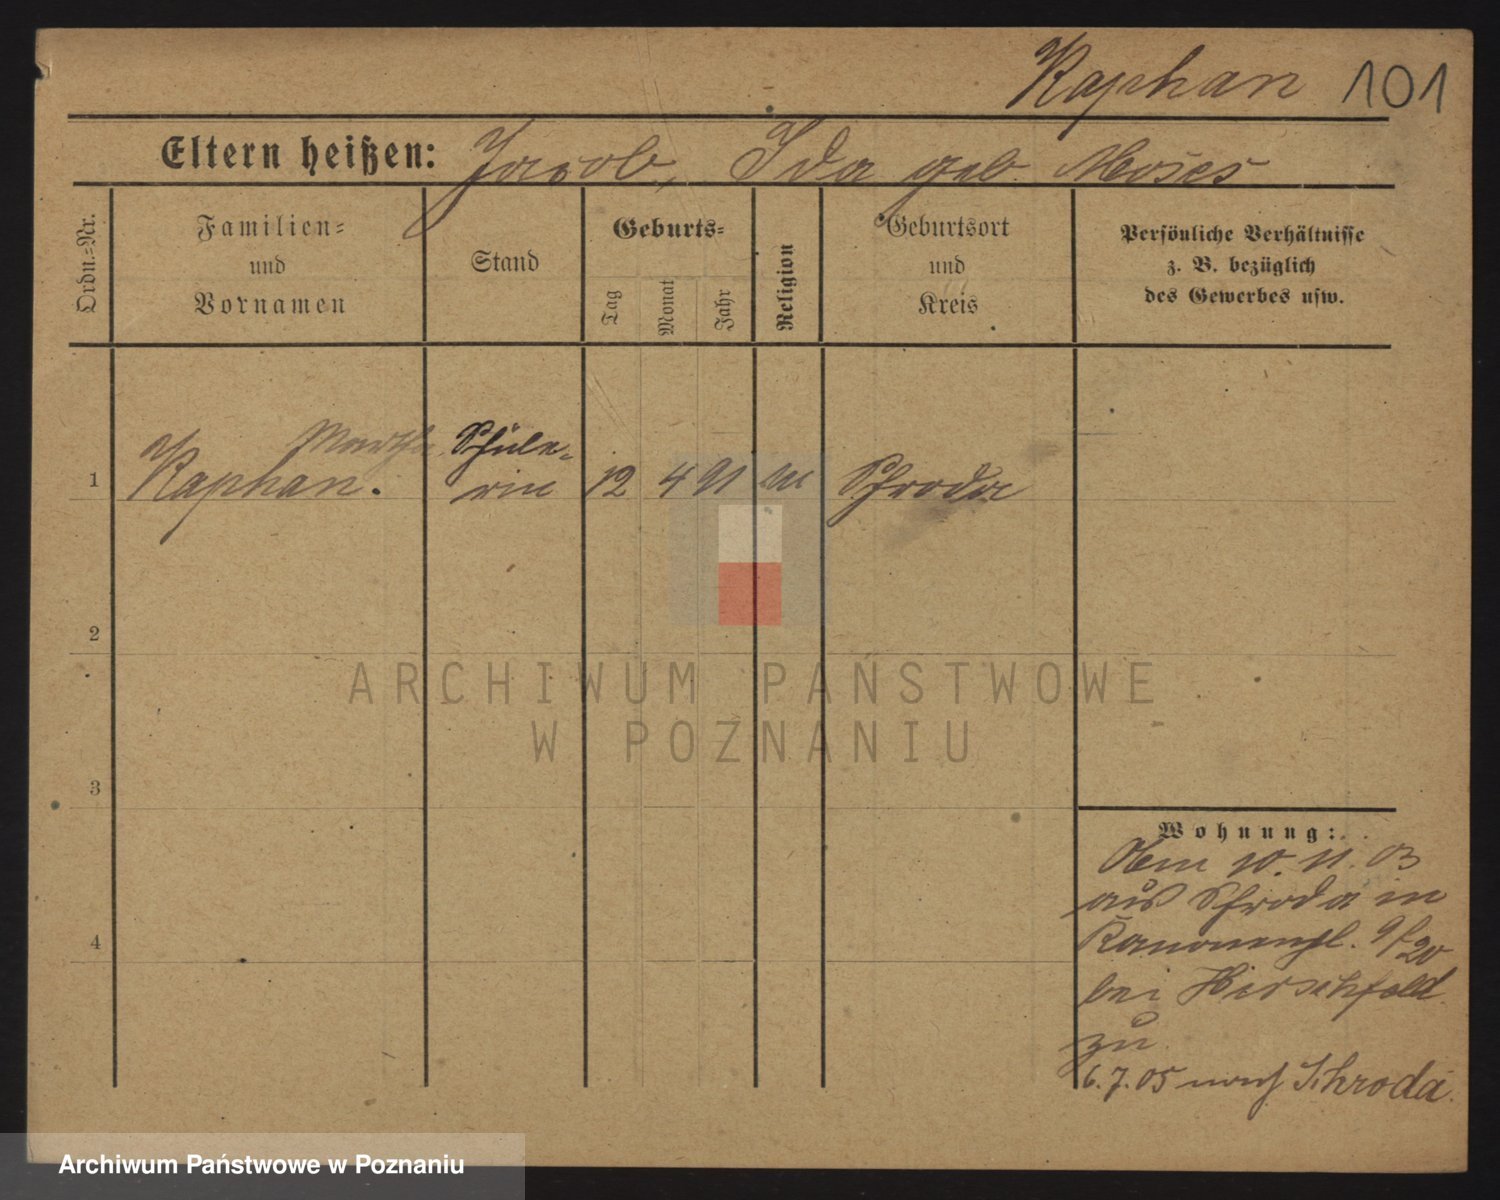 Kaphan 101
Eltern heißen: Jacob, Ida geb. Moses
Ordn.-Nr.
Familien-
und
Vornamen
Stand
Geburts-
Tag
Monat
Jahr
Religion
Geburtsort
und
Kreis
Persönliche Verhältnisse
z. B. bezüglich
des Gewerbes usw.
Martha Schüle-
1 Kaphan. rin 12 4 91 m Schroda
2
3
4
ARCHIWUM PAŃSTWOWE
W POZNANIU
Wohnung:
10. 11. 03
aus Schroda in
Kanonenpl. 9/20
bei Hirschfeld
zu
6.7.05 nach Schroda.
Archiwum Państwowe w Poznaniu